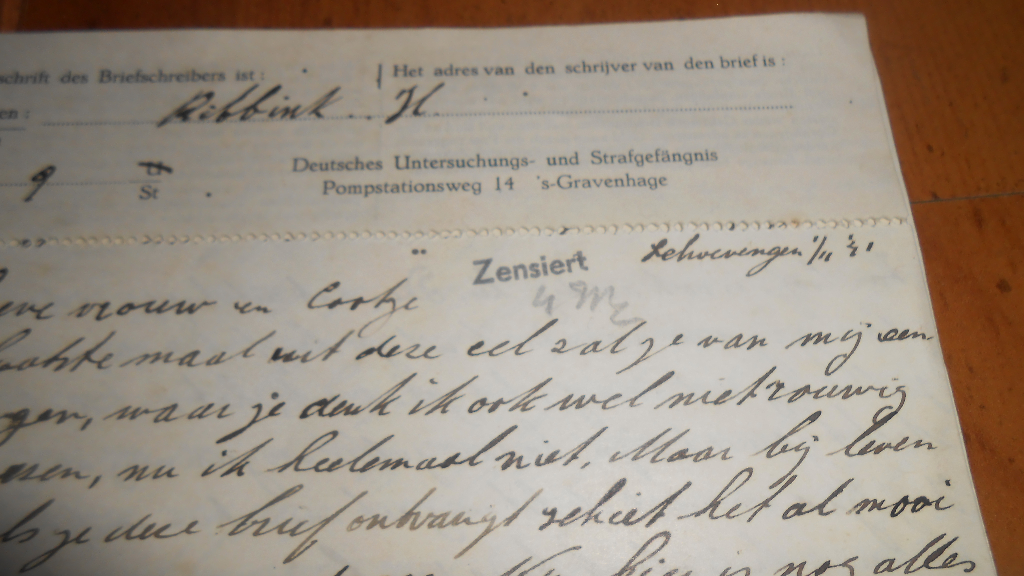 schrift des Briefschreibers ist :
Het adres van den schrijver van den brief is :
en :
Ribbink . . H.
9
St
Deutsches Untersuchungs- und Strafgefängnis
Pompstationsweg 14 's-Gravenhage
Zensiert
eve vrouw en Cootje
aatste maal uit deze cel zal je van mij een
gen, waar je denk ik ook wel niet rouwig
nu ik heelemaal niet. Maar bij leven
ls je deze brief ontvangt schiet het al mooi
hier is nog alles